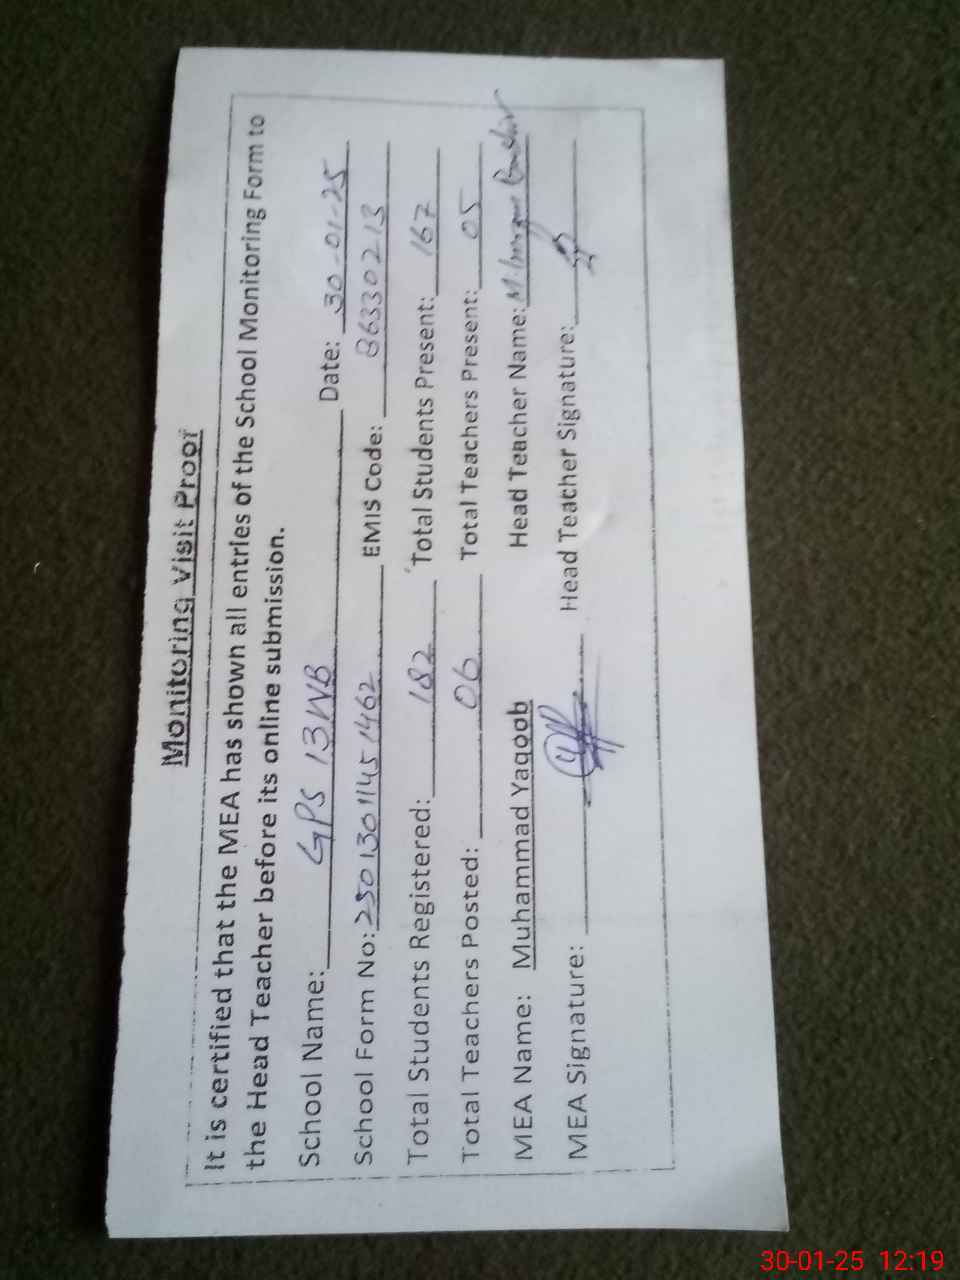 Monitoring Visit Proof
It is certified that the MEA has shown all entries of the School Monitoring Form to
the Head Teacher before its online submission.
School Name: GPS 13WB Date: 30-01-25
School Form No: 25013011451462 EMIS Code: 36330213
Total Students Registered: 182 Total Students Present: 167
Total Teachers Posted: 06 Total Teachers Present: 05
MEA Name: Muhammad Yaqoob Head Teacher Name: M.
MEA Signature: Head Teacher Signature:
30-01-25 12:19